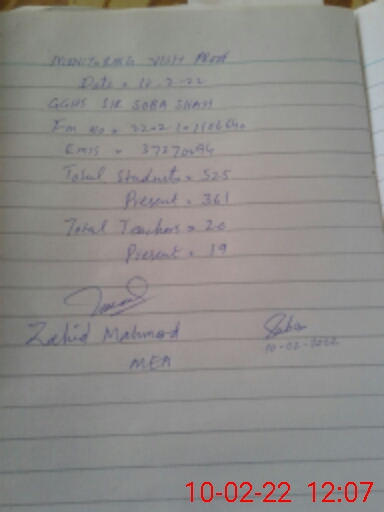 MONITORING VISIT PROOF
Date = 10-2-22
GGHS SIR SOBA SHAH
Total Students = 525
Present = 361
Total Teachers = 20
Present = 19
Zahid Mahmood
MEA
10-02-2022
10-02-22 12:07